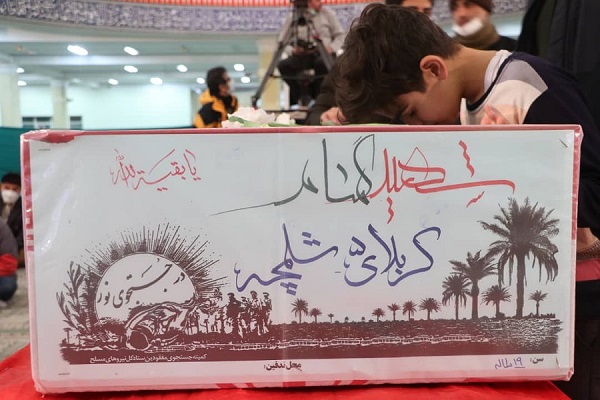 یا بقیة الله
شهید گمنام
کربلای شلمچه
در جستجوی نور
کمیته جستجوی مفقودین ستاد کل نیروهای مسلح
محل تدفین:
سن: ۱۹ ساله